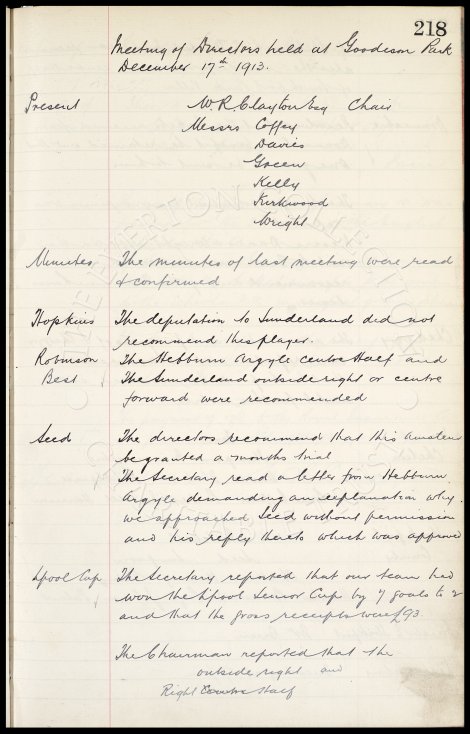 218
Meeting of Directors held at Goodison Park
December 17th 1913.
Present W. R. Clayton Esq Chair
Messrs Coffey
Davies
Green
Kelly
Kirkwood
Wright
Minutes The minutes of last meeting were read
& confirmed
Hopkins The deputation to Sunderland did not
recommend this player.
Robinson The Hebburn Argyle centre Half and
Best The Sunderland outside right or centre
forward were recommended
Seed The directors recommend that this amateur
be granted a months trial
The Secretary read a letter from Hebburn
Argyle demanding an explanation why
we approached Seed without permission
and his reply thereto which was approved
Lpool Cup The Secretary reported that our team had
won the Lpool Senior Cup by 7 goals to 2
and that the gross receipts were £93
The Chairman reported that the
outside right and
Right Half